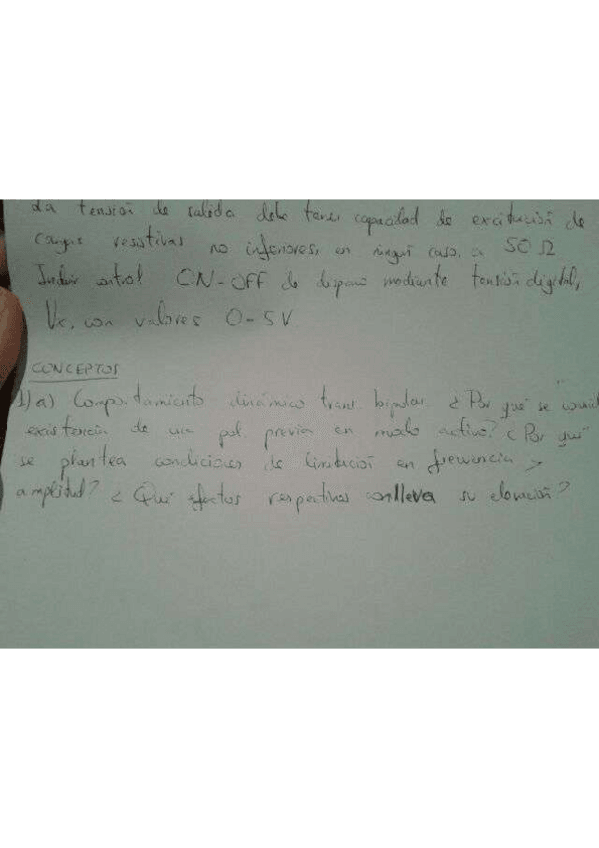 La tensión de salida debe tener capacidad de excitación de
cargas resistivas no inferiores, en ningún caso, a 50 Ω
Incluir control ON-OFF de disparo mediante tensión digital,
Vc, con valores 0-5V
CONCEPTOS
1) a) Comportamiento dinámico trans. bipolar. ¿Por qué se
existencia de una pol. previa en modo activo? ¿Por qué
se plantea condiciones de limitación en frecuencia y
amplitud? ¿Qué efectos respectivos conlleva su elevación?